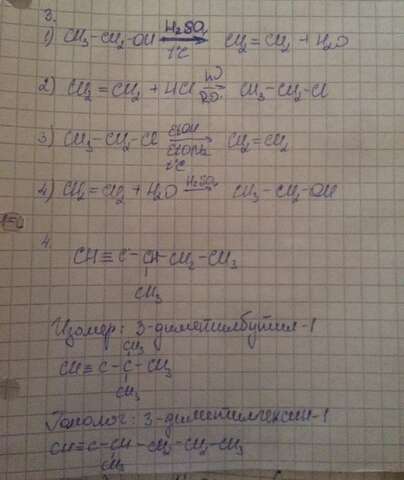 3.
1) CH3-CH2-OH H2SO4 t°C CH2=CH2 + H2O
2) CH2=CH2 + HCl CH3-CH2-Cl
3) CH3-CH2-Cl EtOH EtONa t°C CH2=CH2
4) CH2=CH2 + H2O H2SO4 CH3-CH2-OH
4.
CH≡C-CH-CH2-CH3
CH3
Изомер: 3-диметилбутил-1
CH3
CH≡C-C-CH3
CH3
Гомолог: 3-диметилгексин-1
CH≡C-CH-CH2-CH2-CH3
CH3